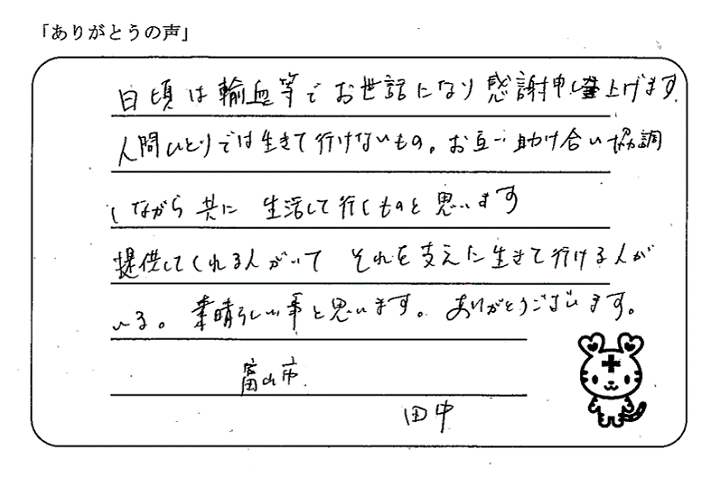 「ありがとうの声」
日頃は輸血等でお世話になり感謝申し上げます
人間ひとりでは生きて行けないもの。お互い助け合い協調
しながら共に 生活して行くものと思います
提供してくれる人がいて それを支えに生きて行ける人が
いる。素晴らしい事と思います。ありがとうございます。
富山市
田中